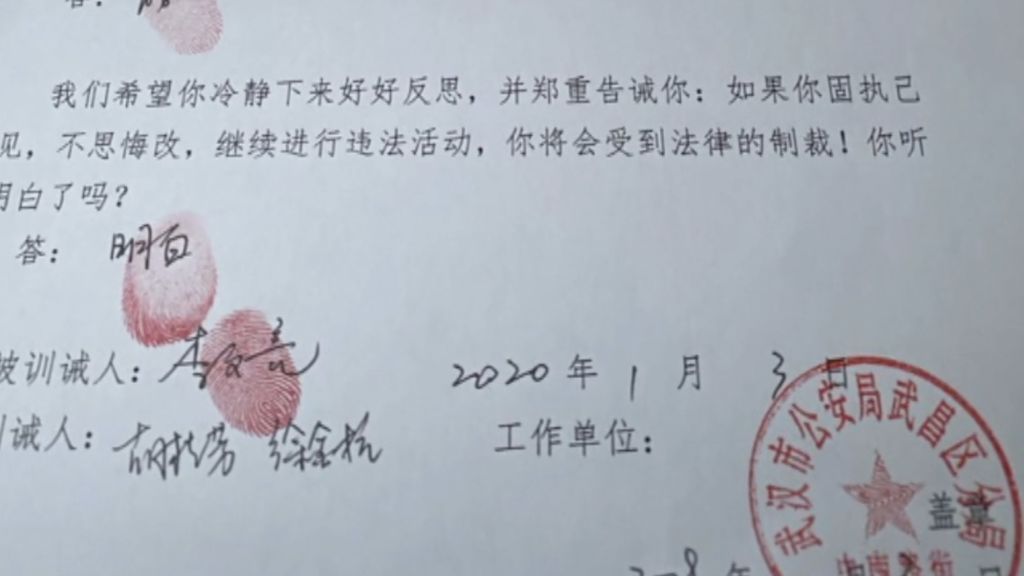 答：
我们希望你冷静下来好好反思，并郑重告诫你：如果你固执己
见，不思悔改，继续进行违法活动，你将会受到法律的制裁！你听
明白了吗？
答： 明白
被训诫人：李文亮 2020 年 1 月 3 日
训诫人： 徐金杭 工作单位：
武汉市公安局武昌区分局
盖章
中南路街
年